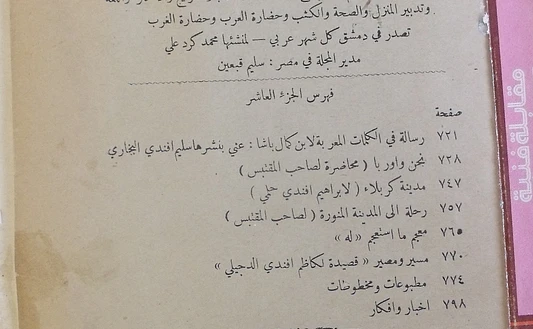 وتدبير المنزل والصحة والكتب وحضارة العرب وحضارة الغرب
تصدر في دمشق كل شهر عربي — لمنشئها محمد كرد علي
مدير المجلة في مصر : سليم قبعين
فهرس الجزء العاشر
صفحة
٧٢١ رسالة في الكلمات المعربة لابن كمال باشا : عني بنشرها سليم افندي البخاري
٧٢٨ نحن واوربا ( محاضرة لصاحب المقتبس )
٧٤٧ مدينة كربلاء ( لابراهيم افندي حلمي )
٧٥٧ رحلة الى المدينة المنورة ( لصاحب المقتبس )
٧٦٥ معجم ما استعجم « له »
٧٧٠ مسير ومصير « قصيدة لكاظم افندي الدجيلي »
٧٧٤ مطبوعات ومخطوطات
٧٩٨ اخبار وافكار
مقابلة فنية